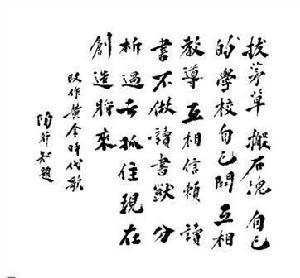 拔茅草搬石塊自己
的學校自己開互相
教導互相信賴讀
書不做讀書獸分
析過去抓住現在
創造將來
改作黃金時代歌
陶行知題